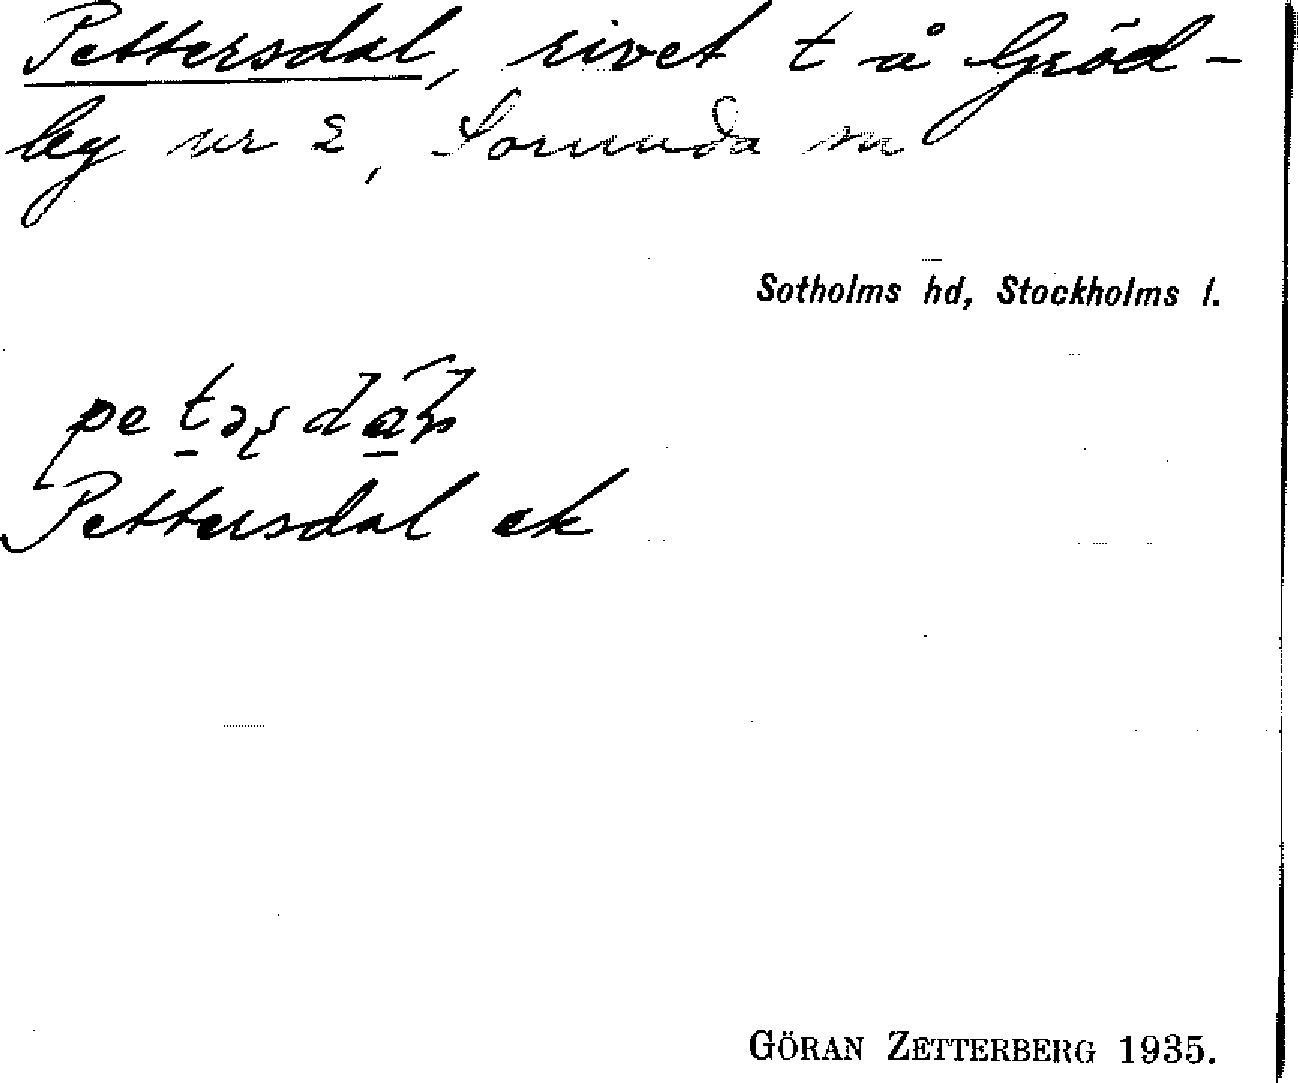 Pettersdal, rivet t å Gröd-
by nr 2, Sorunda sn
Sotholms hd, Stockholms l.
Pettersdal ek
GÖRAN ZETTERBERG 1935.